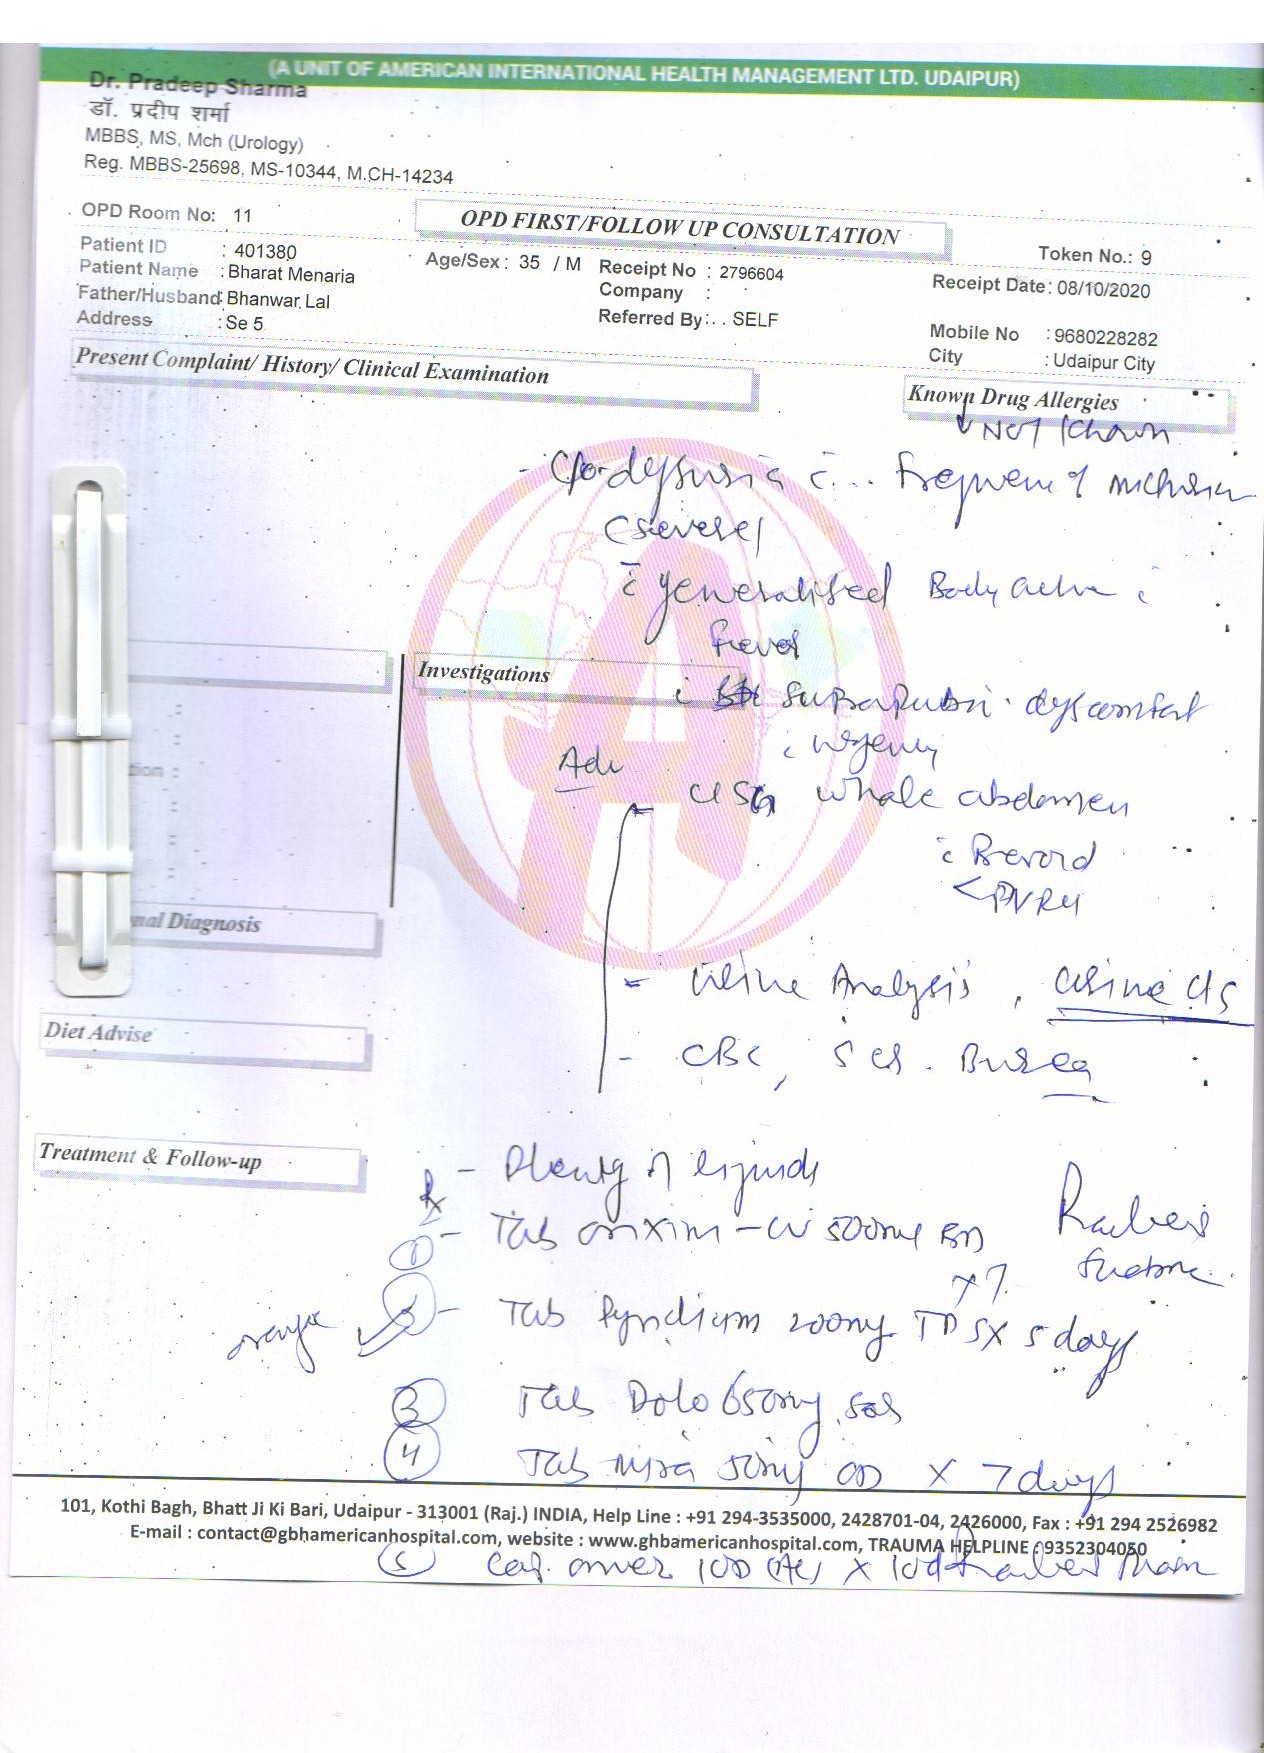 (A UNIT OF AMERICAN INTERNATIONAL HEALTH MANAGEMENT LTD. UDAIPUR)
Dr. Pradeep Sharma
डॉ. प्रदीप शर्मा
MBBS, MS, Mch (Urology)
Reg. MBBS-25698, MS-10344, M.CH-14234
OPD Room No: 11
OPD FIRST/FOLLOW UP CONSULTATION
Token No.: 9
Patient ID : 401380
Age/Sex : 35 / M Receipt No : 2796604
Receipt Date : 08/10/2020
Patient Name : Bharat Menaria
Company :
Father/Husband: Bhanwar Lal
Referred By : . . SELF
Mobile No : 9680228282
Address : Se 5
City : Udaipur City
Present Complaint/ History/ Clinical Examination
Known Drug Allergies
Not Known
- C/o- dysuria c̄ ... frequency of micturition
(severe)
c̄ generalised Body ache c̄
fever
Investigations
c̄ suprapubic dyscomfort
c̄ urgency
Adv
- USG whole abdomen
c̄ Prevoid
< PVRU
- Urine Analysis, Urine C/S
- CBC, S Cr. B urea
tion :
nal Diagnosis
Diet Advise
Treatment & Follow-up
Rx - Plenty of liquids
① - Tab -CV 500mg BD
x 7
- Tab Pyridium 200mg TDS x 5 days
③ Tab Dolo 650mg sos
④ Tab 50mg OD x 7 days
101, Kothi Bagh, Bhatt Ji Ki Bari, Udaipur - 313001 (Raj.) INDIA, Help Line : +91 294-3535000, 2428701-04, 2426000, Fax : +91 294 2526982
E-mail : contact@gbhamericanhospital.com, website : www.ghbamericanhospital.com, TRAUMA HELPLINE : 9352304050
⑤ Cap. 100 x 10d